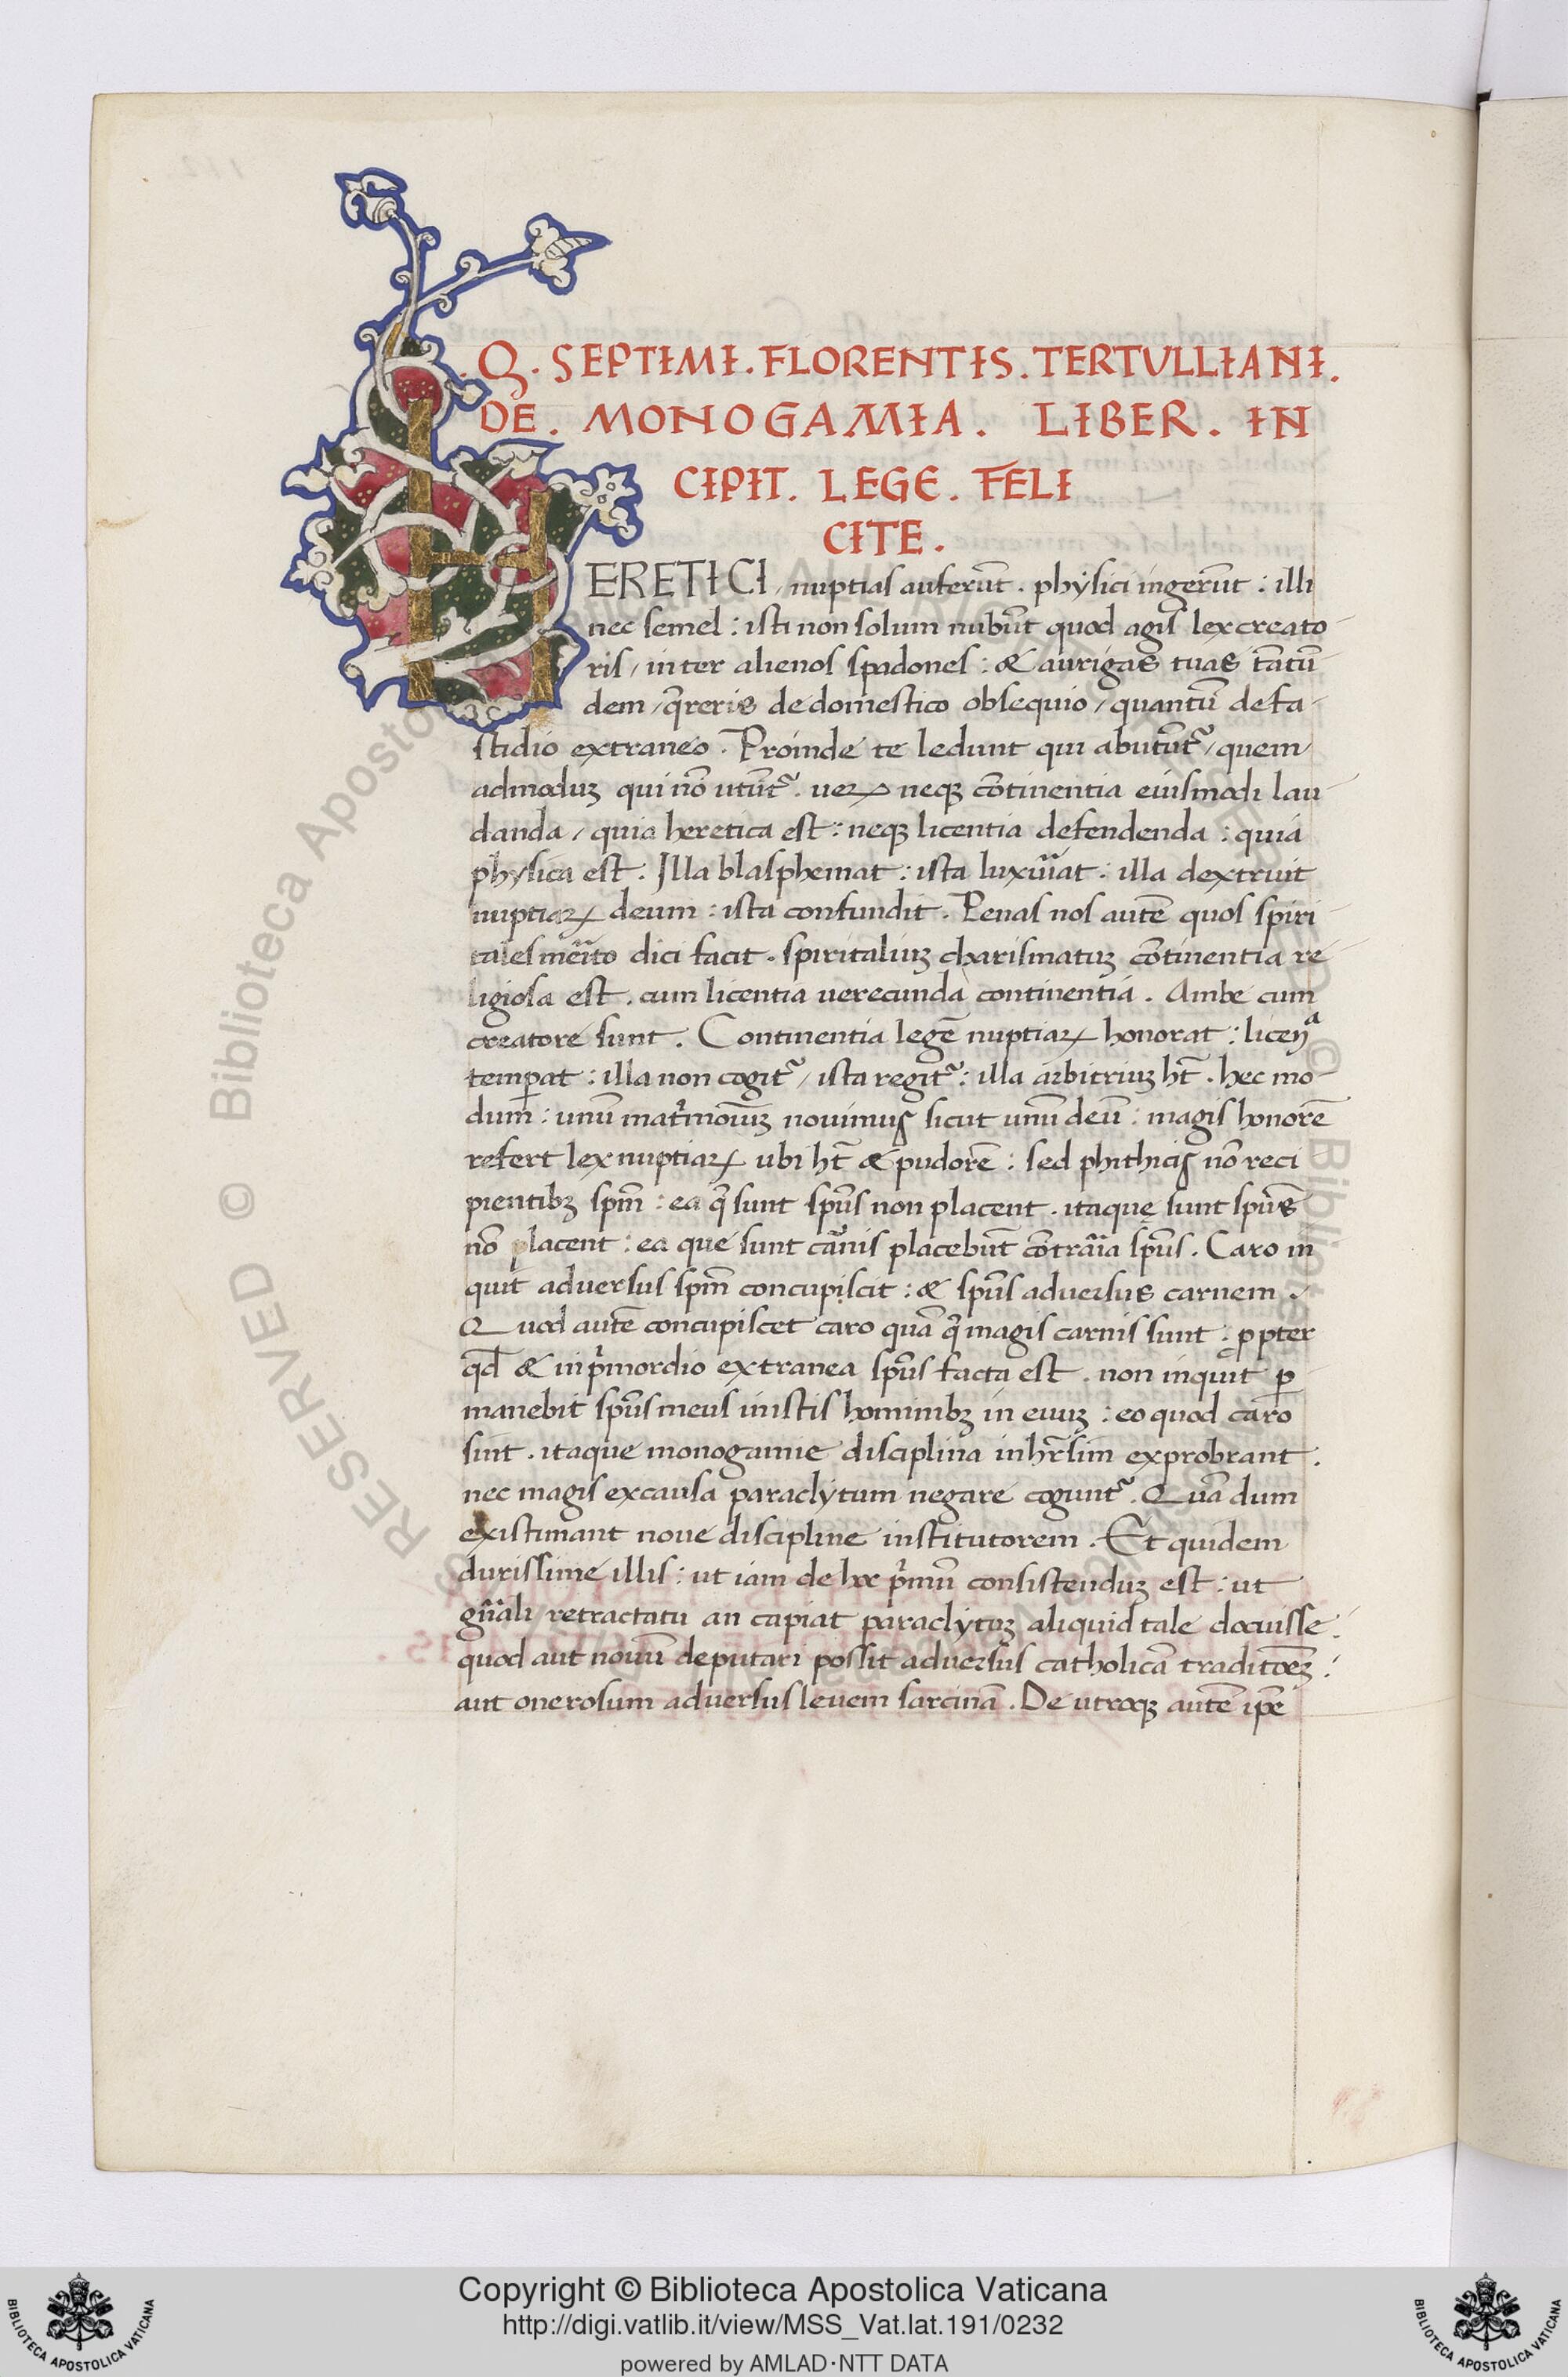 .Q. SEPTIMI. FLORENTIS. TERTULLIANI.
DE. MONOGAMIA. LIBER. IN
CIPIT. LEGE. FELI
CITE.
HERETICI, nuptias auferūt. physici ingerūt: illi
nec semel: isti non solum nubūt quod agis lex creato
ris, inter alienos spadones: & aurigas tuas tātū
dem, q̄reris de domestico obsequio, quantū de fa
stidio extraneo. Proinde te ledunt qui abutūt᷑, quem
admoduꝫ qui nō utūt᷑. ueꝝ neqꝫ cōtinentia eiusmodi lau
danda, quia heretica est: neqꝫ licentia defendenda: quia
physica est. Illa blasphemat: ista luxūiat: illa dextruit
nuptiaꝝ deum: ista confundit. Penas nos autē quos spiri
tales mēito dici facit. spiritaliuꝫ charismatuꝫ cōtinentia re
ligiosa est. cum licentia uerecunda continentia. Ambe cum
creatore sunt. Continentia legē nuptiaꝝ honorat: licenᵃ
temꝑat: illa non cogit᷑, ista regit᷑: illa arbitriuꝫ ht̄. hec mo
dum: unū mat'monīuꝫ nouimus sicut unū deū: magis honorē
refert lex nuptiaꝝ ubi ht̄ & pudorē: sed phithicis nō reci
pientibꝫ spm̄: ea q̄ sunt spūs non placent. itaque sunt spūs
nō placent: ea que sunt cānis placebūt cōtrāia spūs. Caro in
quit aduersus spm̄ concupiscit: & spūs aduersus carnem.
Quod autē concupiscet caro quā q̄ magis carnis sunt: ꝓpter
qd̄ & in p'mordio extranea spūs facta est. non inquit ꝑ
manebit spūs meus in istis hominibꝫ in euuꝫ: eo quod caro
sint. itaque monogamie disciplina in hr̄sim exprobrant.
nec magis ex causa paraclytum negare cogunt᷑. Quā dum
existimant noue discipline institutorem. Et quidem
durissime illis: ut iam de hoc p'mū consistenduꝫ est: ut
gn̄ali retractatu an capiat paraclytuꝫ aliquid tale docuisse:
quod aut nouū deputari possit aduersus catholicā traditōeꝫ:
aut onerosum aduersus leuem sarcinā. De utroqꝫ autē ipē
Copyright © Biblioteca Apostolica Vaticana
http://digi.vatlib.it/view/MSS_Vat.lat.191/0232
powered by AMLAD·NTT DATA
BIBLIOTECA APOSTOLICA VATICANA
BIBLIOTECA APOSTOLICA VATICANA